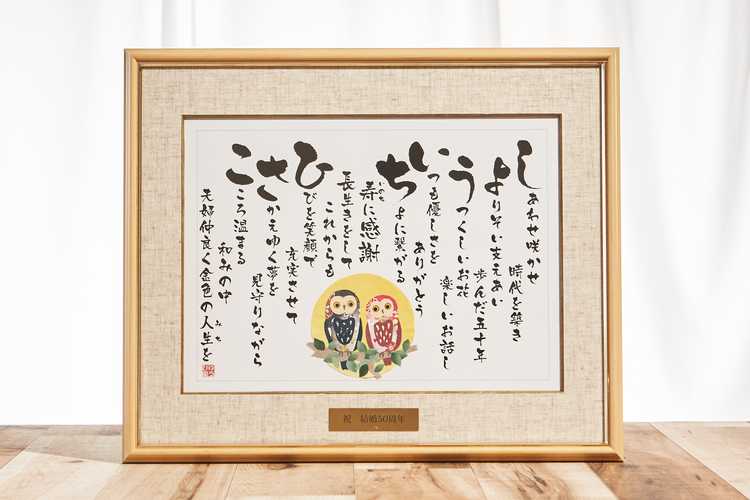 しあわせ咲かせ
時代を築き
よりそい支えあい
歩んだ五十年
うつくしいお花
楽しいお話し
いつも優しさを
ありがとう
ちよに繋がる
いのち
寿に感謝
長生きをして
これからも
ひびを笑顔で
充実させて
さかえゆく夢を
見守りながら
こころ温まる
和みの中
みち
夫婦仲良く金色の人生を
祝 結婚50周年